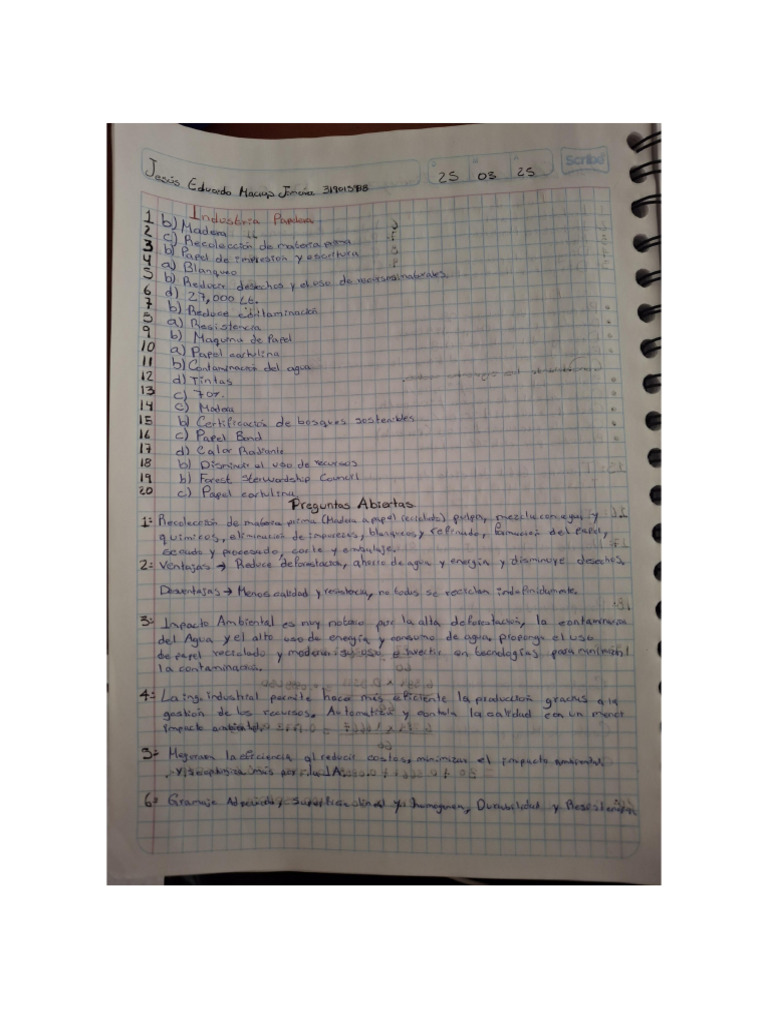 Scribe
Jesús Eduardo Macías Jiménez 319015918
25 03 25
Industria Papelera
1 b) Madera
2 c) Recolección de materia prima
3 b) Papel de impresión y escritura
4 a) Blanqueo
5 b) Reducir desechos y el uso de recursos naturales
6 d) 27,000 Lt.
7 b) Reduce contaminación
8 a) Resistencia
9 b) Maquina de Papel
10 a) Papel cartulina
11 b) Contaminación del agua
12 d) Tintas
13 c) 70%
14 c) Madera
15 b) Certificación de bosques sostenibles
16 c) Papel Bond
17 d) Calor Radiante
18 b) Disminuir el uso de recursos
19 b) Forest Sterwordship Council
20 c) Papel cartulina
Preguntas Abiertas
1= Recolección de materia prima (Madera a papel reciclado) pulpa, mezcla con agua y
quimicos, eliminación de impurezas, blanqueo y refinado, formación del papel,
secado y procesado, corte y embalaje.
2= Ventajas → Reduce deforestación, ahorro de agua y energía y disminuye desechos.
Desventajas → Menos calidad y resistencia, no todos se reciclan indefinidamente.
3= Impacto Ambiental es muy notorio por la alta deforestación, la contaminación
del Agua y el alto uso de energía y consumo de agua, propongo el uso
de papel reciclado y modernizar e invertir en tecnologías para minimizar
la contaminación.
4= La ing. industrial permite hacer más eficiente la producción gracias a la
gestión de los recursos. Automatiza y controla la calidad con un menor
impacto ambiental.
5= Mejoran la eficiencia al reducir costos, minimizar el impacto ambiental
y se optimiza más por la IA.
6= Gramaje Adecuado, superficie lineal y homogenea, Durabilidad y Resistencia